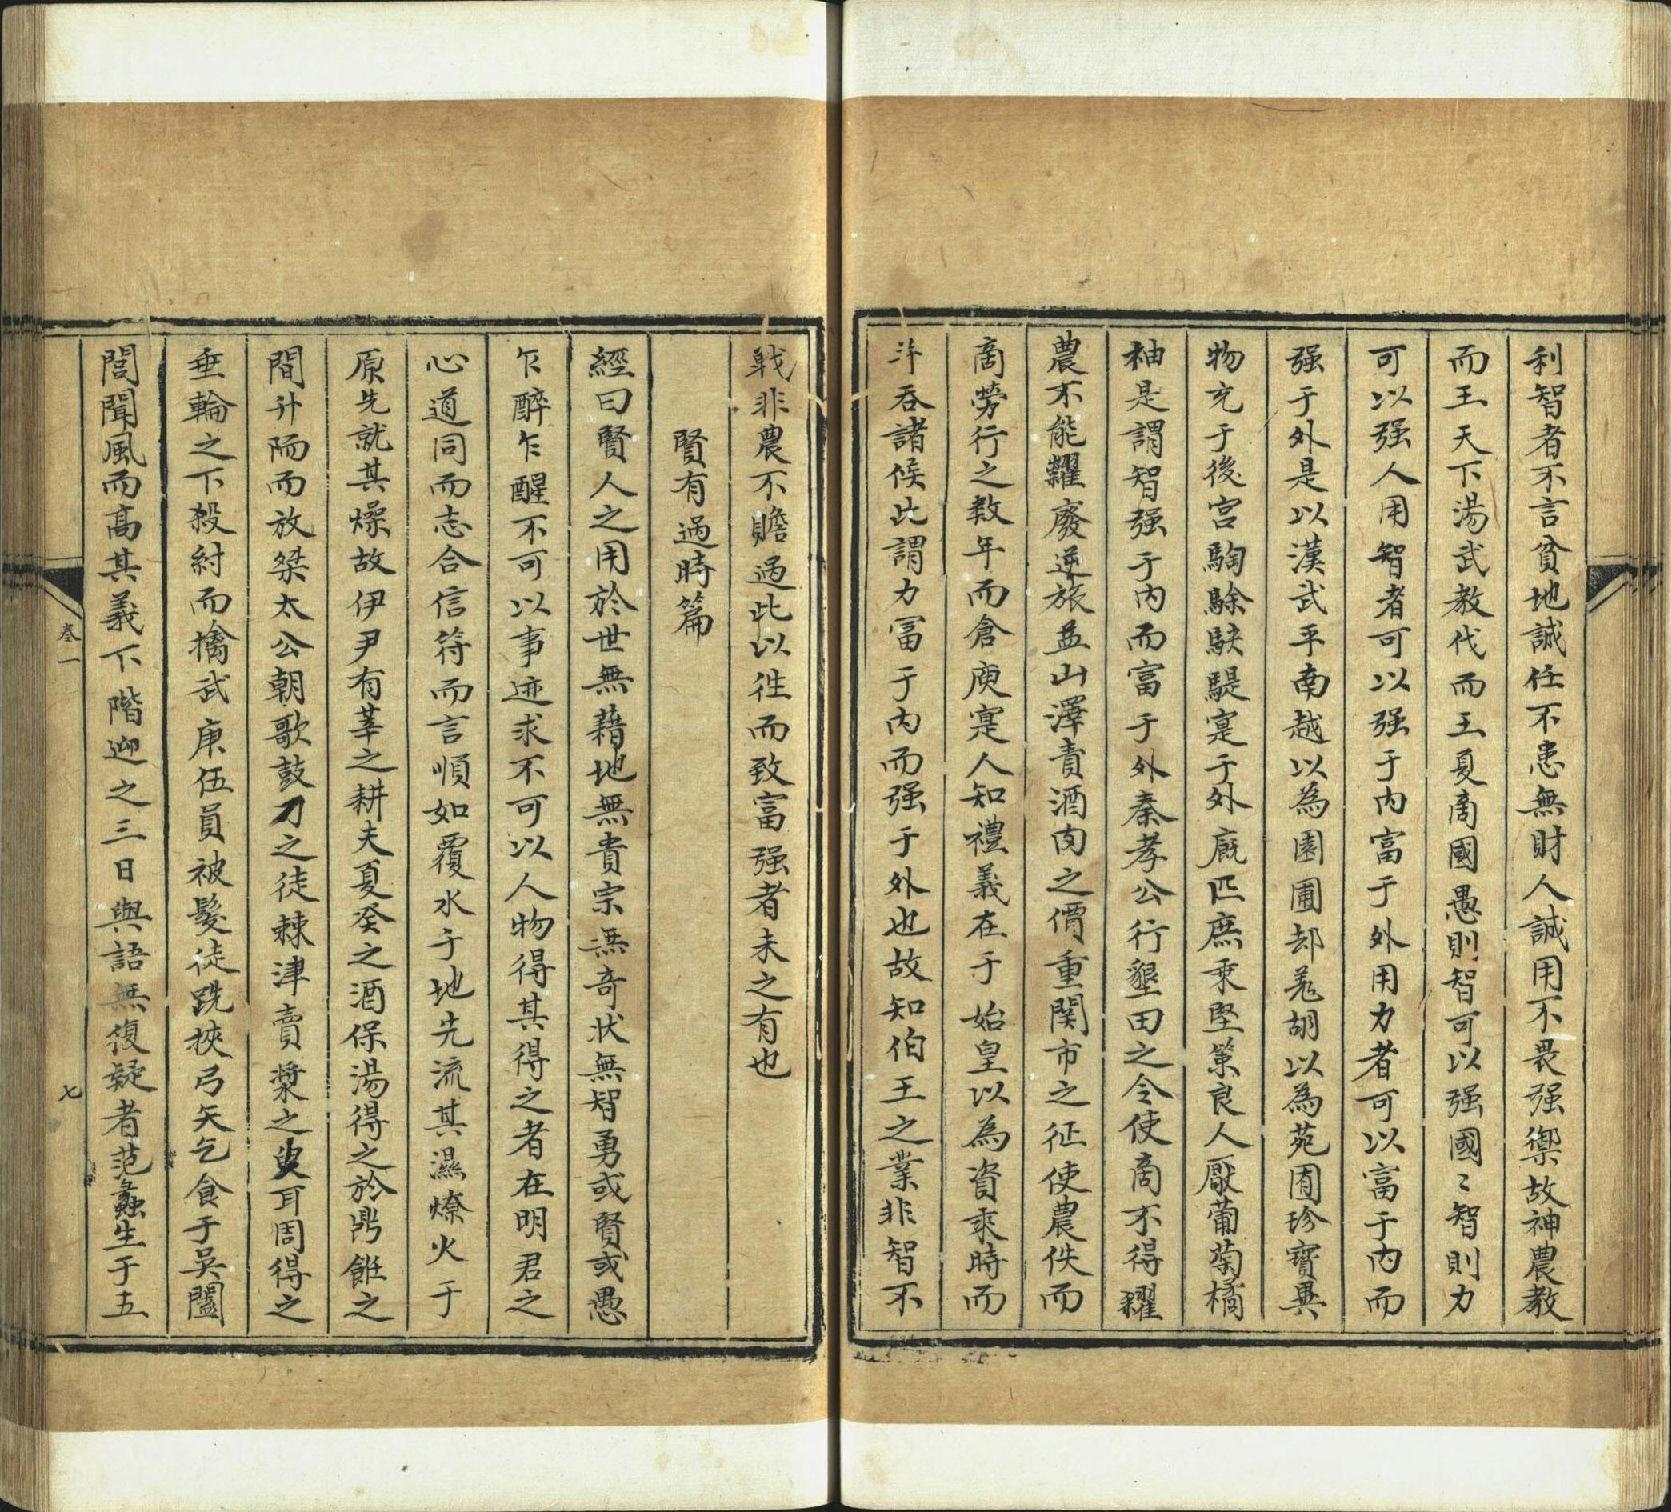 利智者不言貧地誠任不患無財人誠用不畏强禦故神農教
而王天下湯武教代而王夏啇國愚則智可以强國〻智則力
可以强人用智者可以强于内富于外用力者可以富于内而
强于外是以漢武平南越以為園圃却羌胡以為苑囿珍寶異
物充于後宫騊駼駃騠寔于外厩匹庶乗堅策良人厭葡萄橘
柚是謂智强于内而富于外秦孝公行墾田之令使啇不得糴
農不能糶廢逆旅益山澤責酒肉之價重関市之征使農佚而
啇勞行之数年而倉庾寔人知禮義在于始皇以為資乘時而
斗吞諸侯此謂力冨于内而强于外也故知伯王之業非智不
戰非農不贍過此以徃而致富强者未之有也
賢有過時篇
經曰賢人之用於世無藉地無貴宗無奇状無智勇或賢或愚
乍醉乍醒不可以事迹求不可以人物得其得之者在明君之
心道同而志合信符而言順如覆水于地先流其濕燎火于
原先就其燥故伊尹有莘之耕夫夏癸之酒保湯得之於鼎飪之
間升陑而放桀太公朝歌鼓刀之徒棘津賣漿之叟耳周得之
垂輪之下殺紂而擒武庚伍員被髪徒跣挾弓矢乞食于吴闔
閭聞風而髙其義下階迎之三日與語無復疑者范蠡生于五
卷一
七